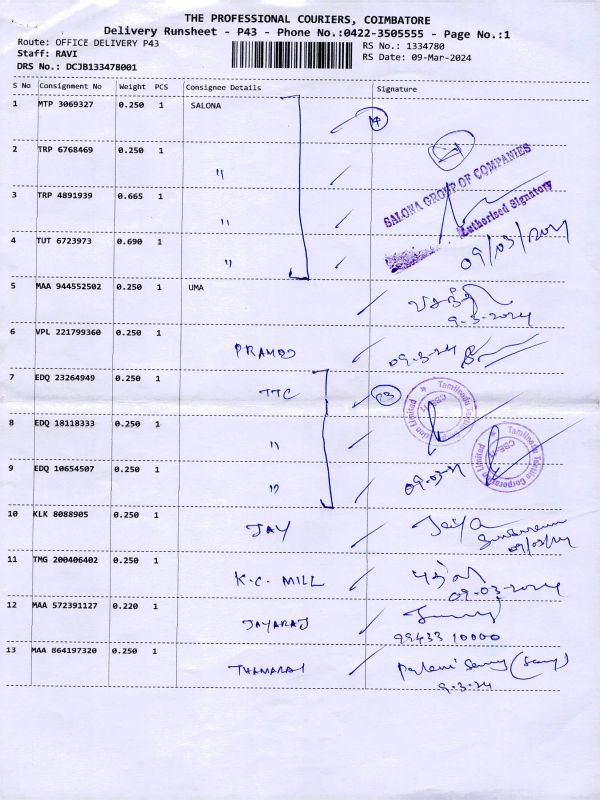 THE PROFESSIONAL COURIERS, COIMBATORE
Delivery Runsheet - P43 - Phone No.:0422-3505555 - Page No.:1
Route: OFFICE DELIVERY P43
Staff: RAVI
DRS No.: DCJB133478001
RS No.: 1334780
RS Date: 09-Mar-2024
S No Consignment No Weight PCS Consignee Details Signature
1 MTP 3069327 0.250 1 SALONA
2 TRP 6768469 0.250 1 "
SALONA GROUP OF COMPANIES
3 TRP 4891939 0.665 1 "
Authorised Signatory
4 TUT 6723973 0.690 1 "
09/03/2024
5 MAA 944552502 0.250 1 UMA
9-3-2024
6 VPL 221799360 0.250 1 PRAMOD 09-3-24
7 EDQ 23264949 0.250 1 TTC
8 EDQ 18118333 0.250 1 "
Tamilnadu Textile Corporation Limited
9 EDQ 10654507 0.250 1 "
10 KLK 8088905 0.250 1 JAY Jaya
11 TMG 200406402 0.250 1 K.C. MILL
09-03-2024
12 MAA 572391127 0.220 1 JAYARAJ
99433 10000
13 MAA 864197320 0.250 1 THAMARAI
9-3-24